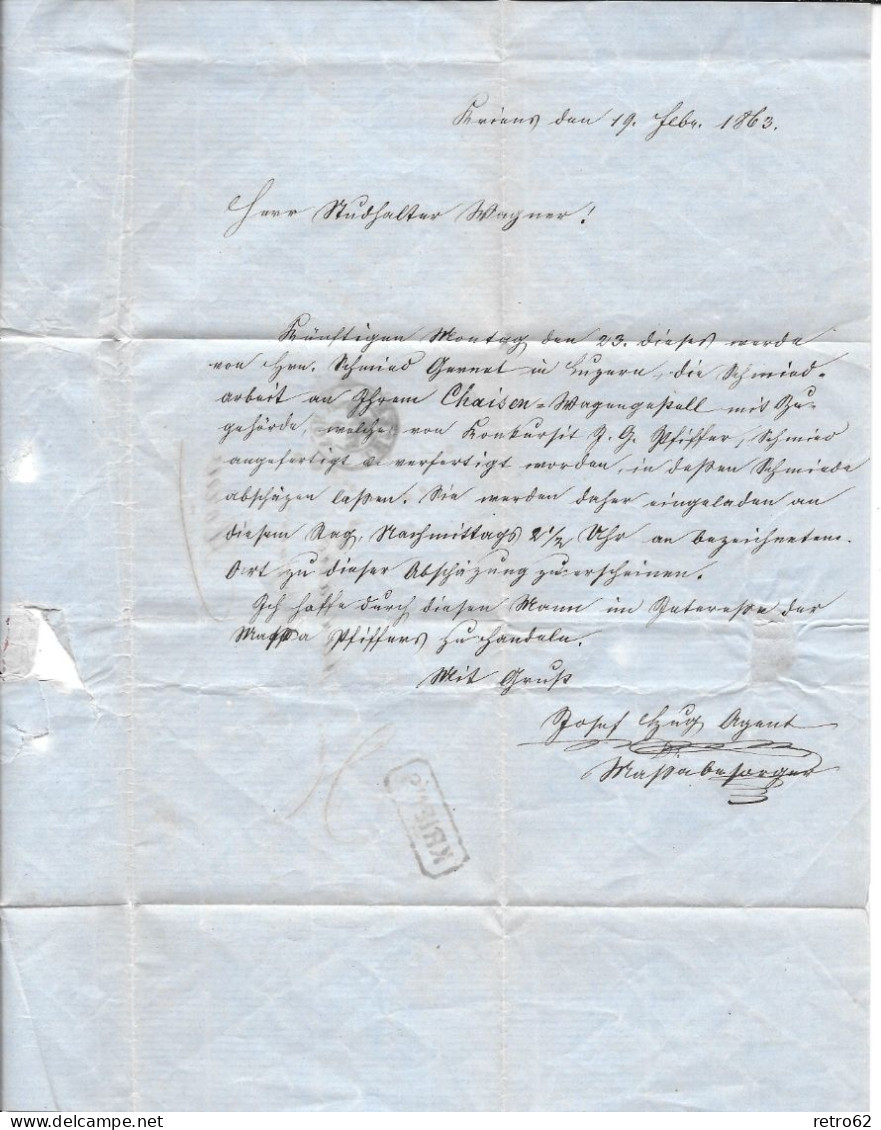 Kriens den 19. Febr. 1863.
Herr Studhalter Wagner!
Künftigen Montag den 23. dieses werde
von Hrn. Schmied Gernet in Luzern, die Schmied-
arbeit an Ihrem Chaisen-Wagengestell mit Zu-
gehörde, welches von Konkursit J. G. Pfiffer, Schmied
angefertigt & verfertigt worden, in deßen Schmiede
abschäzen laßen. Sie werden daher eingeladen an
diesem Tag, Nachmittags 2 1/2 Uhr an bezeichnetem
Ort zu dieser Abschäzung zu erscheinen.
Ich hoffe durch diesen Mann im Intereße der
Maßa Pfiffers zu handeln.
Mit Gruß
Josef Hug Agent
Maßabesorger
KRIENS
delcampe.net
retro62